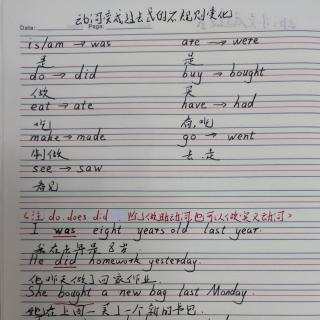 动词变成过去式的不规则变化
Date: Page:
is/am → was are → were
是 是
do → did buy → bought
做 买
eat → ate have → had
吃 有,吃
make → made go → went
制做 去.走
see → saw
看见
(注 do.does did 除了做助动词也可以做实义动词)
I was eight years old last year.
我在去年是8岁.
He did homework yesterday.
他昨天做了回家作业.
She bought a new bag last Monday.
她在上周一买了一个新的书包.